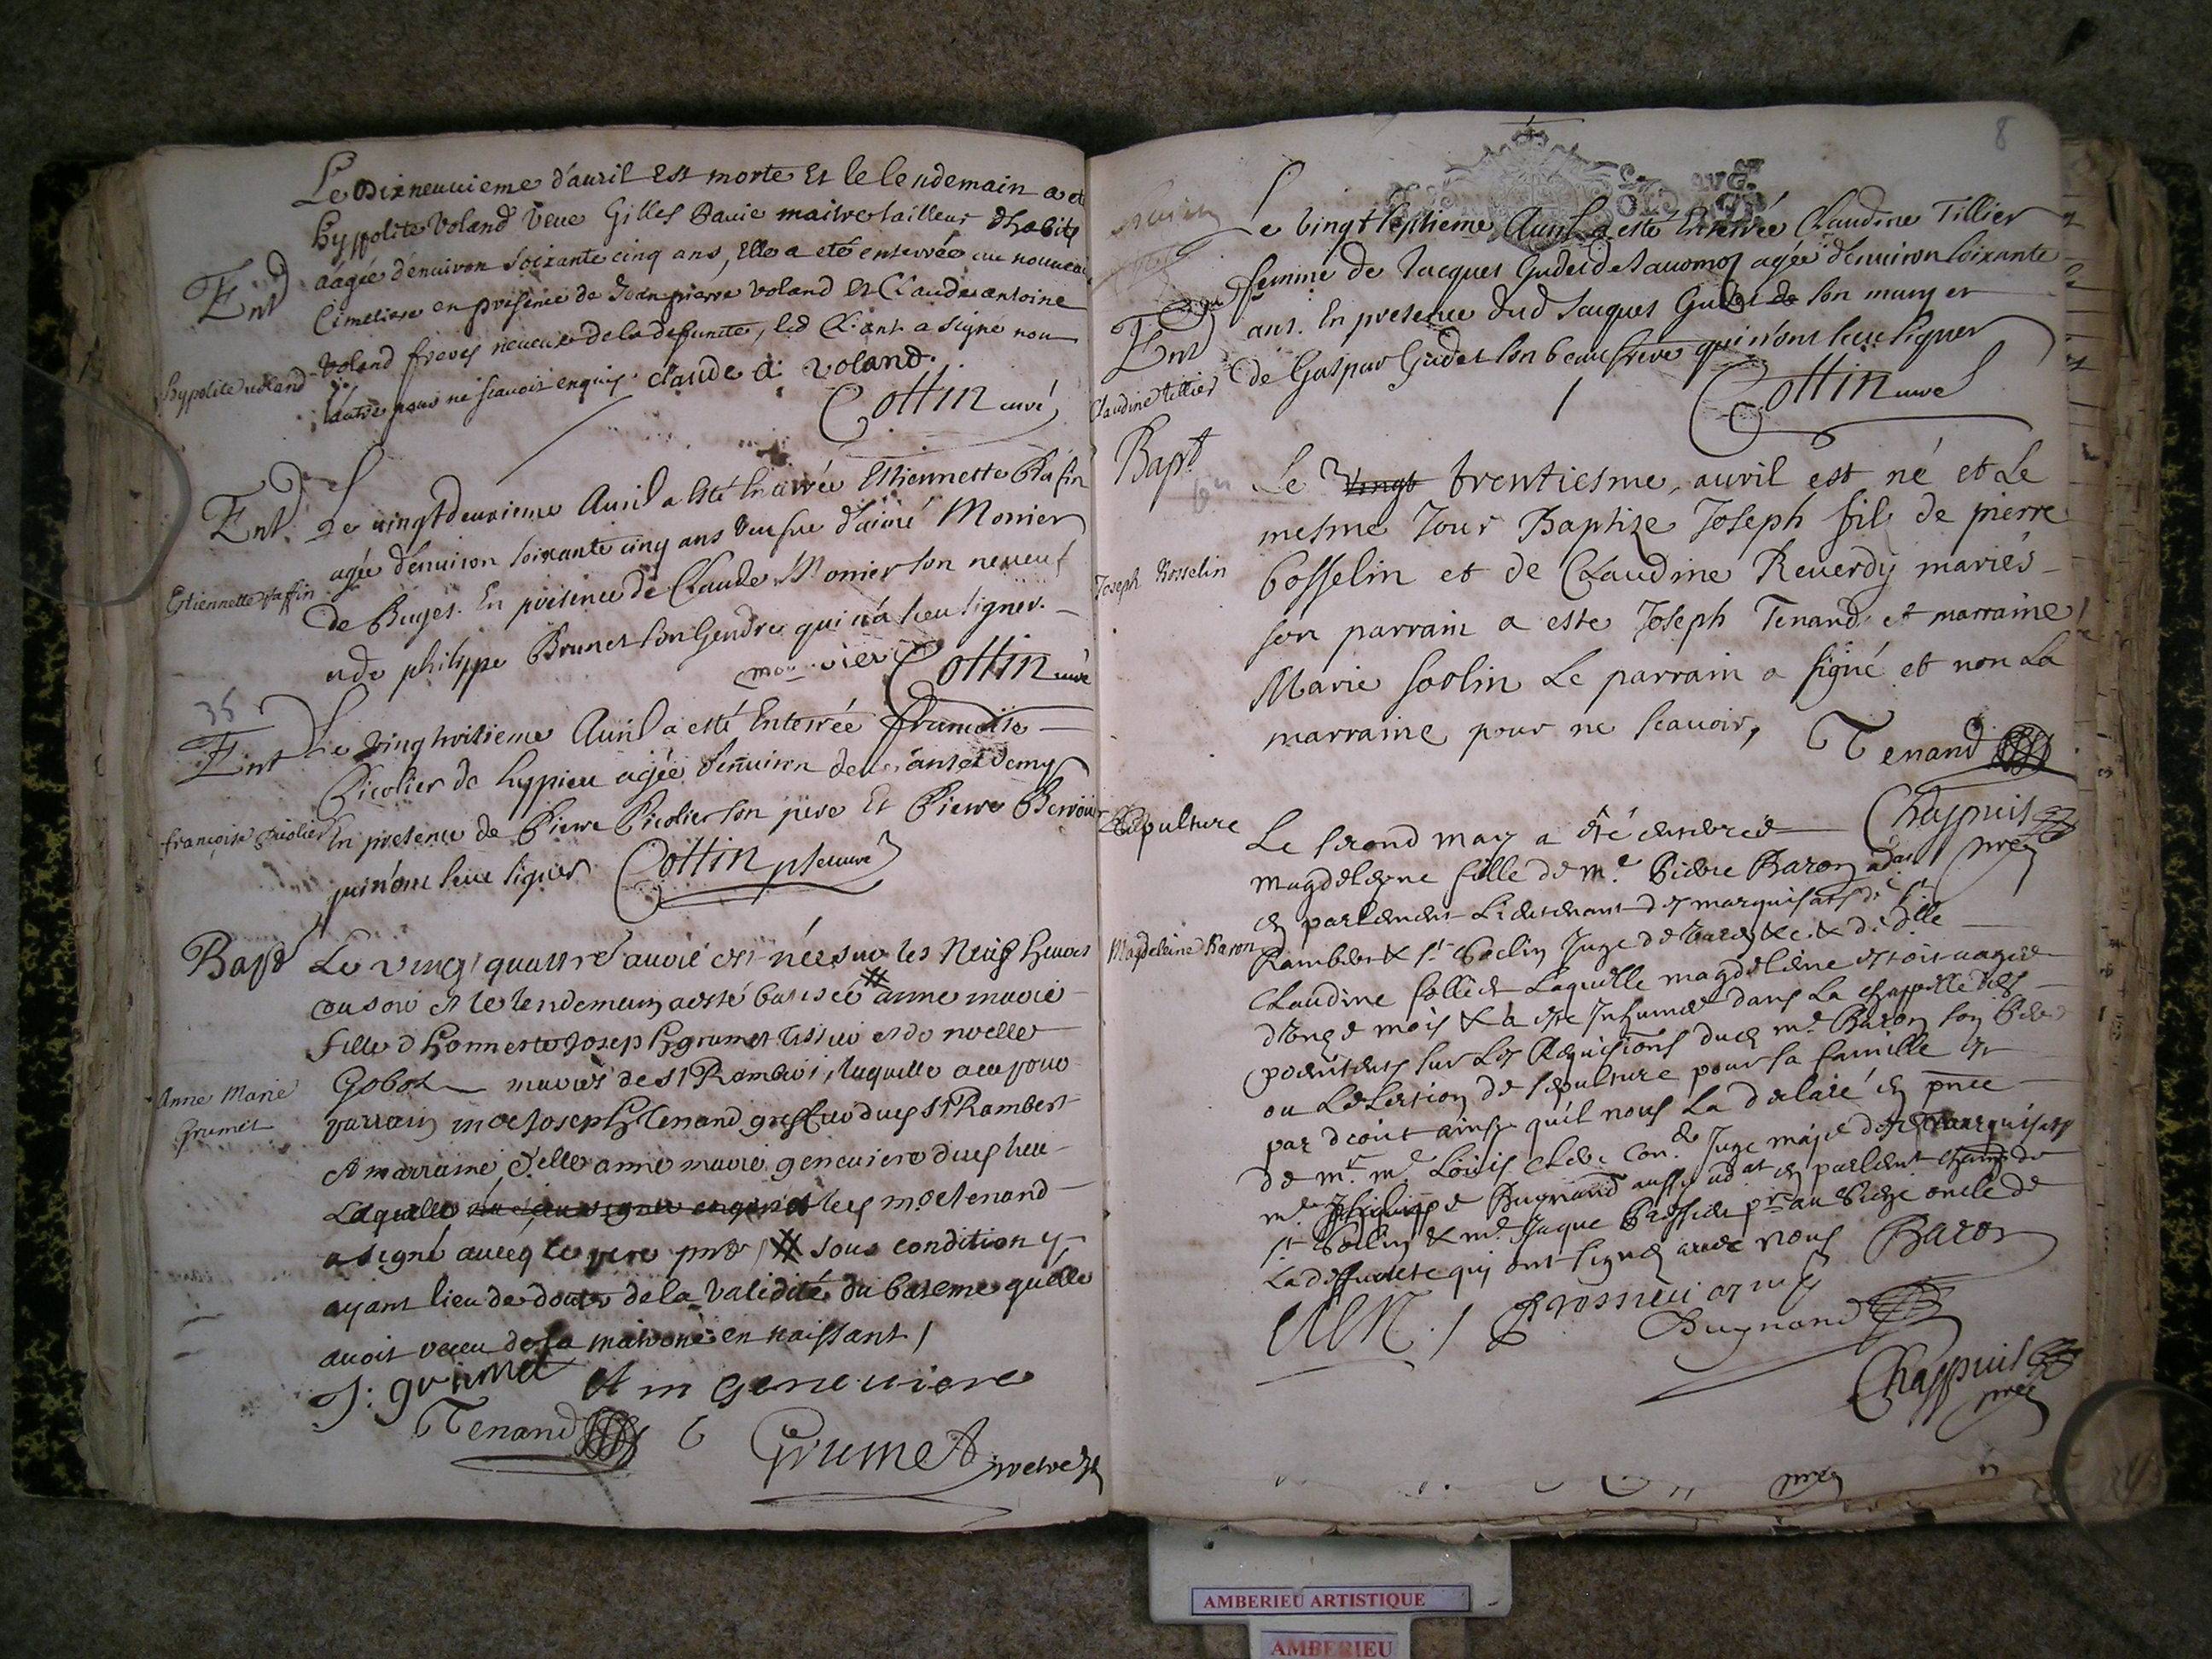 Le Dixneuvieme d'auril est morte et le lendemain a
hyppolite voland veue Gilles Davie maitre tailleur d'habits
Ent
aagée d'enuiron soixante cinq ans, elle a eté enterrée au nouveau
Cimetiere en presence de Jean pierre voland et Claude antoine
hyppolite voland
voland freres neueux de la defuncte, led Cl: ant. a signé non
lautre pour ne scauoir enquis. claude a: voland.
Cottin curé
Ent.
Le vingtdeuxieme Auril a esté Enterrée Estiennette
agée d'enuiron soixante cinq ans veufue d'aimé Monier
Estiennette
de Buges. En présence de Claude Monier son neueuf
et de philippe Brunet son Gendre qui n'a sceu signer.
monier Cottin curé
35
Ent
Le vingthuitieme Auril a esté Enterrée francoise
Picolier de hyppieu agée d'enuiron deux ans et demy
françoise Picolier
En presence de Pierre Picolier son pere Et Pierre
qui n'ont sceu signer Cottin curé
Bapt
Le vingt quattre auril est née sur les Neuf heures
du soir et le lendemain a esté batisée # anne marie
fille d'honneste Joseph grumet tissier et de noelle
Anne Marie
Grumet
Gobet mariés de St Rambert, laquelle a eu pour
parrain me Joseph Tenand greffier dud St Rambert
et marraine d'elle anne marie geneuiere dud lieu
Laquelle led me tenand
a signé auecq le pere # sous condition y
ayant lieu de douter de la validité du bateme quelle
auoit receu de la matrone en naissant /
J: grumet A m geneuiere
Tenand Grumet
8
AVG.
Le vingtseptieme Auril a esté Enterrée Claudine Tillier
femme de Jacques Gudet de agée d'enuiron soixante
Ent
ans. En presence dud Jacques Gudet son mary et
Claudine tillier
de Gaspar Gudet son beaufrere qui n'ont sceu signer
Cottin curé
Bapt
Le vingt trentiesme, auril est né et Le
mesme Jour Baptize Joseph fils de pierre
Joseph Rosselin
Rosselin et de Claudine Reuerdy mariés
son parrain a este Joseph Tenand et marraine
Marie sorlin Le parrain a signé et non La
marraine pour ne scauoir, Tenand
Chappuis
Sepulture
Le second may a été enterrée
magdeleine fille de me Pierre Baron adat
en parlement Lieutenant des marquisats de St
Magdeleine Baron
Rambert & St Sorlin Juge de & de dlle
Claudine follier Laquelle magdelene estoit aagée
d'onze mois & a este Inhumée dans La chappelle des
penitents sur Les Requisitions dud me Baron son Pere
ou eslection de sepulture pour sa famille
par droit ainsy qu'il nous La declaré en pnce
de mr me Louis Juge maje des marquisats
me philippe Bugnand aussy adat en parlement
St Sorlin & me Jaque oncle de
La deffuncte qui ont signé auec nous Baron
Bugnand
Chappuis
AMBERIEU ARTISTIQUE
AMBERIEU